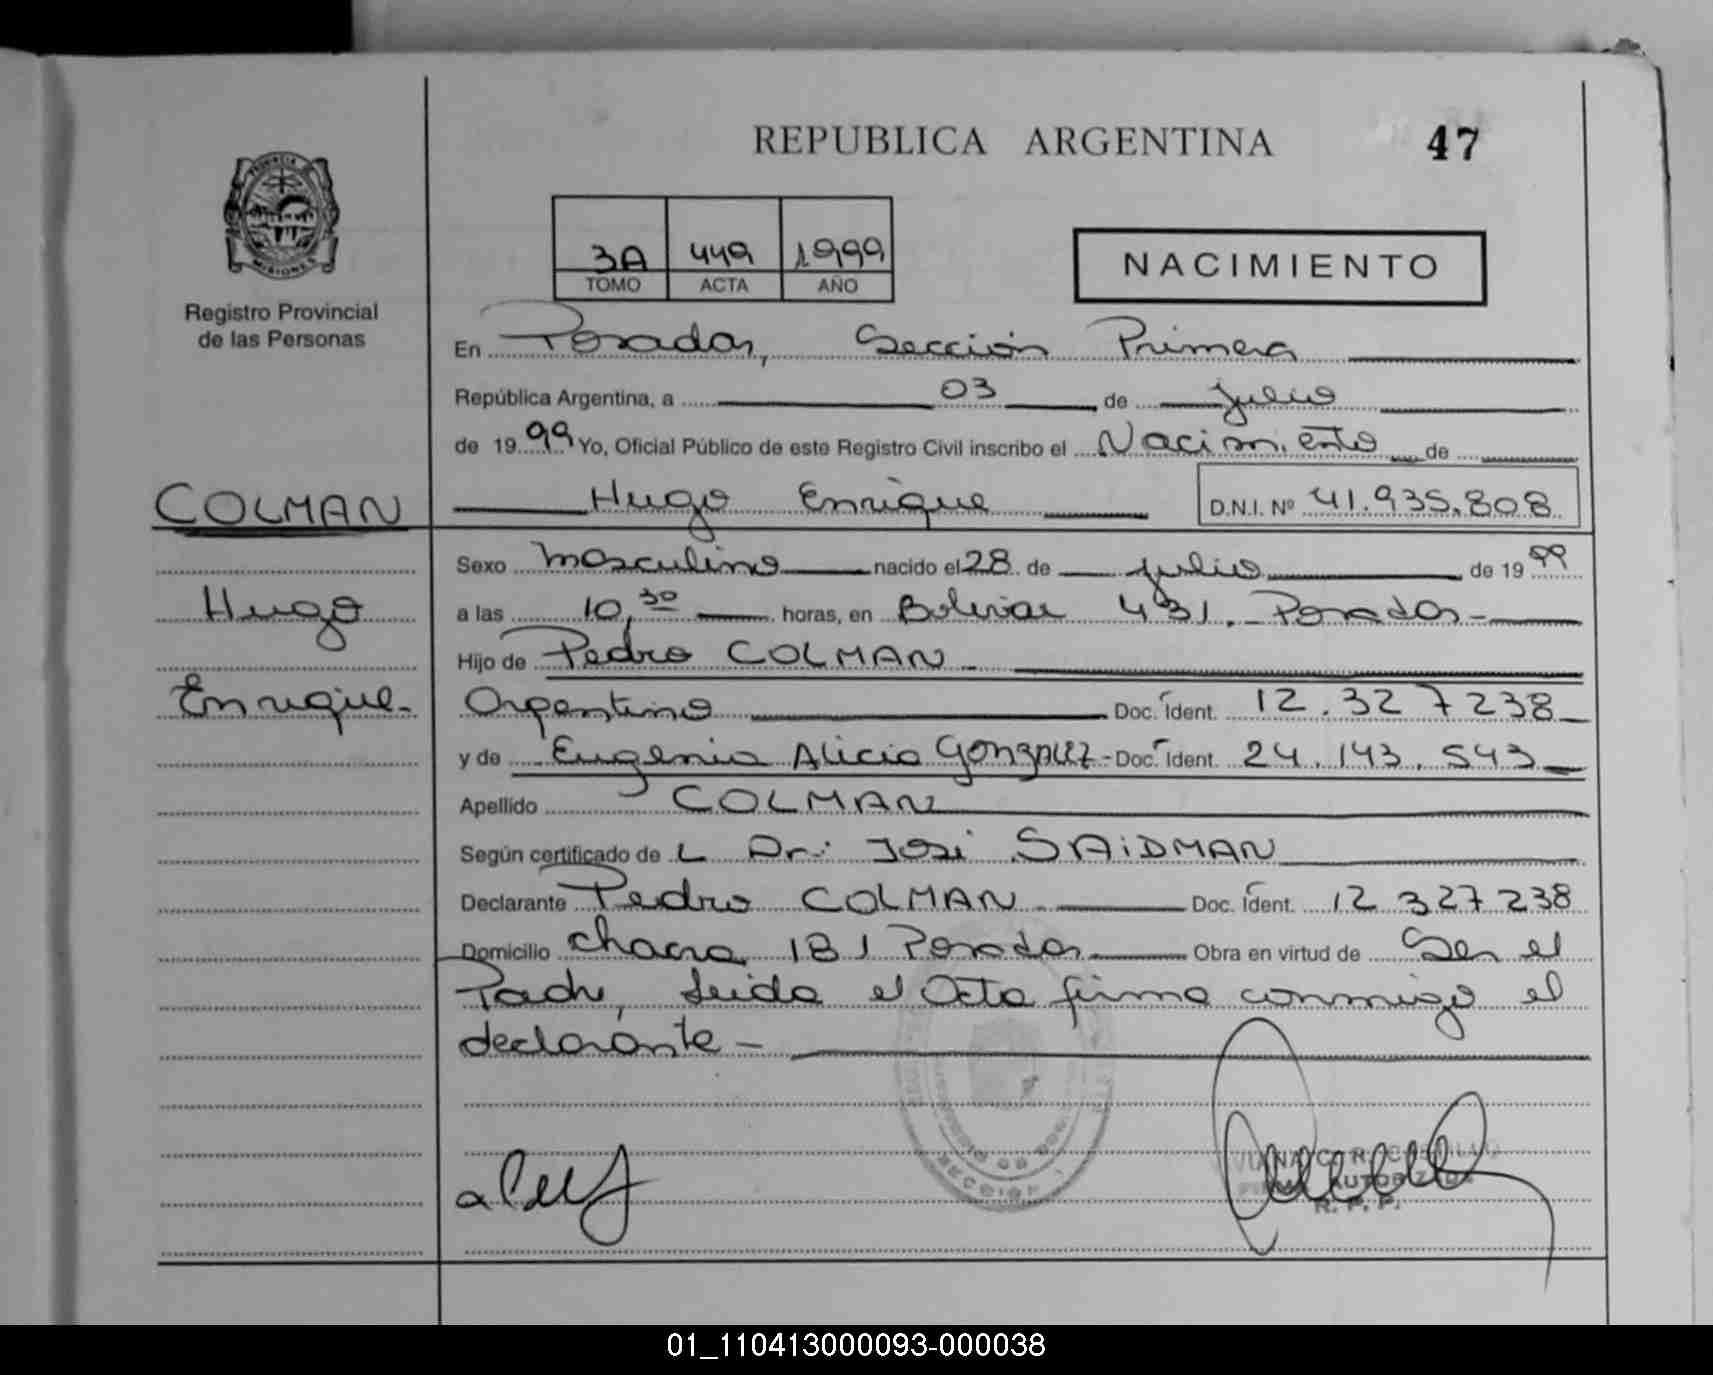 REPUBLICA ARGENTINA
47
PROVINCIA
MISIONES
Registro Provincial
de las Personas
3A 449 1999
TOMO ACTA AÑO
NACIMIENTO
En Posadas, Sección Primera
República Argentina, a 03 de julio
de 1999 Yo, Oficial Público de este Registro Civil inscribo el Nacimiento de
COLMAN
Hugo Enrique D.N.I. Nº 41.935.808
Sexo masculino nacido el 28 de julio de 1999
Hugo
a las 10,30 horas, en Bolivar 431. Posadas-
Hijo de Pedro COLMAN
Enrique-
Argentino Doc. Ident. 12.327238
y de Eugenia Alicia GONZALEZ - Doc. Ident. 24.143.543
Apellido COLMAN
Según certificado de L Dr: José SAiDMAN
Declarante Pedro COLMAN Doc. Ident. 12 327 238
Domicilio chacra 181 Posadas Obra en virtud de Ser el
Padre, leida el Acta firma conmigo el
declarante-
SECCION 1
R. P. P.
01_110413000093-000038